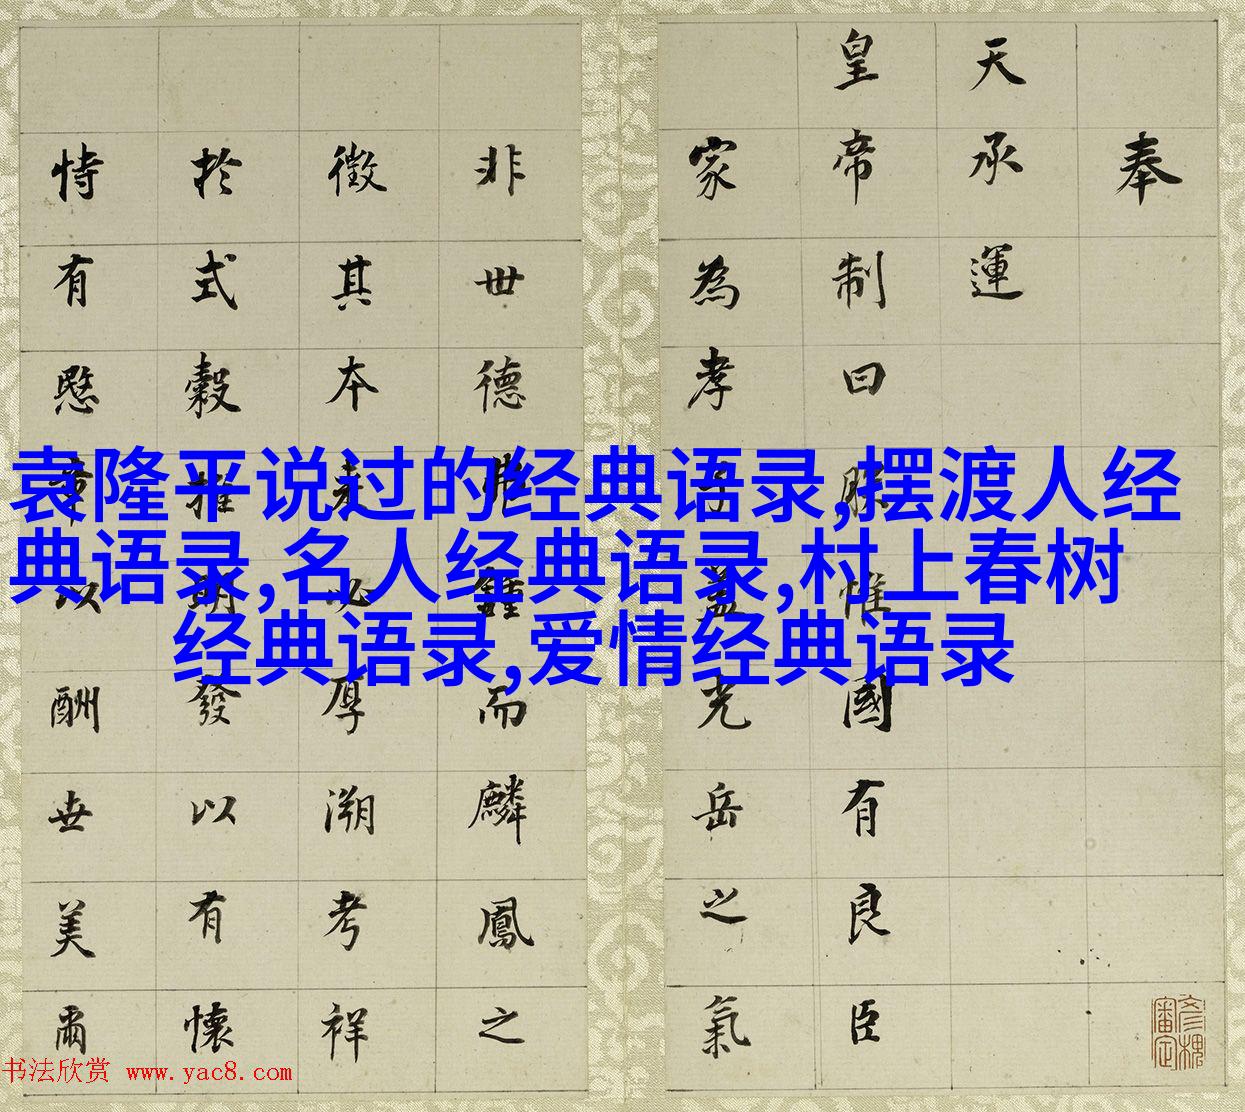 奉
天承運
皇帝制曰朕惟國有良臣
家為孝子蓋光岳之氣
非世德弗鍾而麟鳳之
徵其本來必厚溯考祥
於式穀推明發以有懷
恃有愍章以酬世美爾
袁隆平说过的经典语录,摆渡人经
典语录,名人经典语录,村上春树
经典语录,爱情经典语录
书法欣赏 www.yac8.com